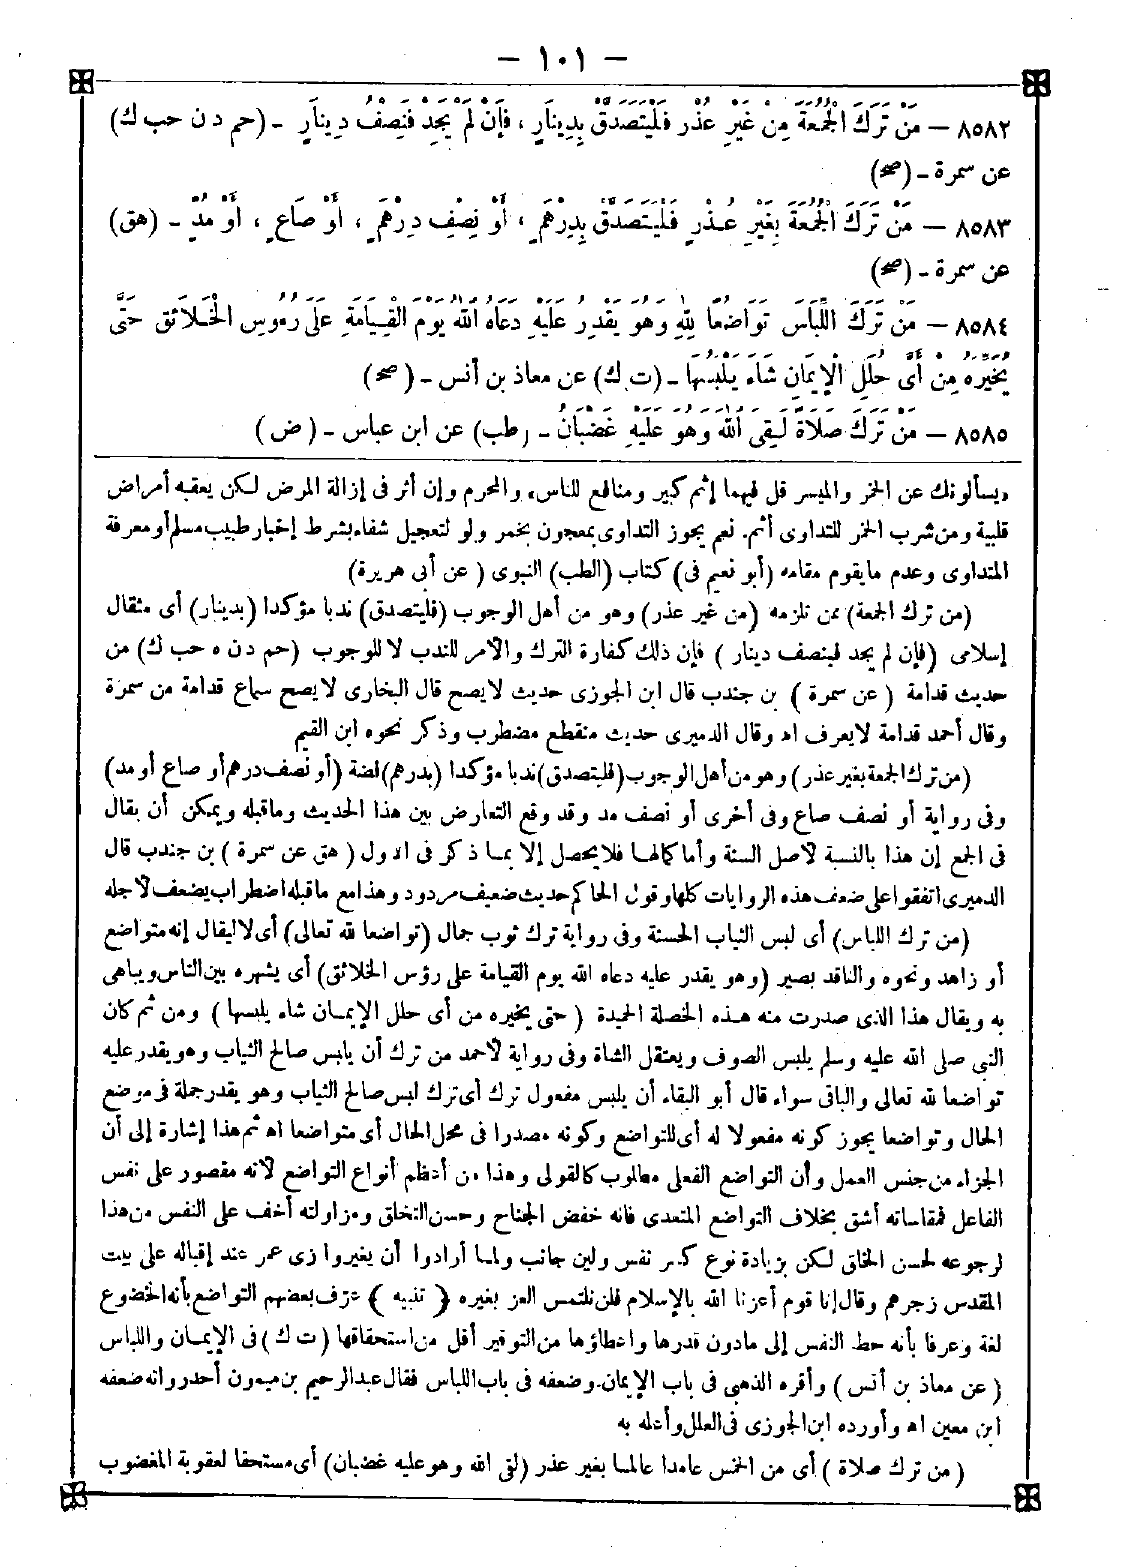 — ١٠١ —
٨٥٨٢ — مَنْ تَرَكَ الْجُمُعَةَ مِنْ غَيْرِ عُذْرٍ فَلْيَتَصَدَّقْ بِدِينَارٍ ، فَإِنْ لَمْ يَجِدْ فَنِصْفُ دِينَارٍ - (حم د ن حب ك)
عن سمرة - (صح)
٨٥٨٣ — مَنْ تَرَكَ الْجُمُعَةَ بِغَيْرِ عُذْرٍ فَلْيَتَصَدَّقْ بِدِرْهَمٍ ، أَوْ نِصْفِ دِرْهَمٍ ، أَوْ صَاعٍ ، أَوْ مُدٍّ - (هق)
عن سمرة - (صح)
٨٥٨٤ — مَنْ تَرَكَ اللِّبَاسَ تَوَاضُعًا لِلّٰهِ وَهُوَ يَقْدِرُ عَلَيْهِ دَعَاهُ اللّٰهُ يَوْمَ الْقِيَامَةِ عَلَى رُءُوسِ الْخَلَائِقِ حَتَّى
يُخَيِّرَهُ مِنْ أَىِّ حُلَلِ الْإِيمَانِ شَاءَ يَلْبَسُهَا - (ت ك) عن معاذ بن أنس - (صح)
٨٥٨٥ — مَنْ تَرَكَ صَلَاةً لَقِىَ اللّٰهَ وَهُوَ عَلَيْهِ غَضْبَانُ - (طب) عن ابن عباس - (ض)
«يسألونك عن الخمر والميسر قل فيهما إثم كبير ومنافع للناس» والمحرم وإن أثر فى إزالة المرض لكن يعقبه أمراض
قلبية ومن شرب الخمر للتداوى أثم. نعم يجوز التداوى بمعجون بخمر ولو لتعجيل شفاء بشرط إخبار طبيب مسلم أو معرفة
المتداوى وعدم ما يقوم مقامه (أبو نعيم فى) كتاب (الطب) النبوى (عن أبى هريرة)
(من ترك الجمعة) ممن تلزمه (من غير عذر) وهو من أهل الوجوب (فليتصدق) ندبا مؤكدا (بدينار) أى مثقال
إسلامى (فإن لم يجد فبنصف دينار) فإن ذلك كفارة الترك والأمر للندب لا للوجوب (حم د ن ه حب ك) من
حديث قدامة (عن سمرة) بن جندب قال ابن الجوزى حديث لا يصح قال البخارى لا يصح سماع قدامة من سمرة
وقال أحمد قدامة لا يعرف اه وقال الدميرى حديث منقطع مضطرب وذكر نحوه ابن القيم
(من ترك الجمعة بغير عذر) وهو من أهل الوجوب (فليتصدق) ندبا مؤكدا (بدرهم) فضة (أو نصف درهم أو صاع أو مد)
وفى رواية أو نصف صاع وفى أخرى أو نصف مد وقد وقع التعارض بين هذا الحديث وما قبله ويمكن أن يقال
فى الجمع إن هذا بالنسبة لأصل السنة وأما كمالها فلا يحصل إلا بما ذكر فى الأول (هق عن سمرة) بن جندب قال
الدميرى اتفقوا على ضعف هذه الروايات كلها وقول الحاكم حديث ضعيف مردود وهذا مع ما قبله اضطراب يضعف لأجله
(من ترك اللباس) أى لبس الثياب الحسنة وفى رواية ترك ثوب جمال (تواضعا لله تعالى) أى لا ليقال إنه متواضع
أو زاهد ونحوه والناقد بصير (وهو يقدر عليه دعاه الله يوم القيامة على رؤس الخلائق) أى يشهره بين الناس ويباهى
به ويقال هذا الذى صدرت منه هذه الخصلة الحميدة (حتى يخيره من أى حلل الإيمان شاء يلبسها) ومن ثم كان
النبى صلى الله عليه وسلم يلبس الصوف ويعتقل الشاة وفى رواية لأحمد من ترك أن يلبس صالح الثياب وهو يقدر عليه
تواضعا لله تعالى والباقى سواء قال أبو البقاء أن يلبس مفعول ترك أى ترك لبس صالح الثياب وهو يقدر جملة فى موضع
الحال وتواضعا يجوز كونه مفعولا له أى للتواضع وكونه مصدرا فى محل الحال أى متواضعا اه ثم هذا إشارة إلى أن
الجزاء من جنس العمل وأن التواضع الفعلى مطلوب كالقولى وهذا من أعظم أنواع التواضع لأنه مقصور على نفس
الفاعل فمقاساته أشق بخلاف التواضع المتعدى فانه خفض الجناح وحسن التخلق ومزاولته أخف على النفس من هذا
لرجوعه لحسن الخلق لكن بزيادة نوع كسر نفس ولين جانب ولما أرادوا أن يغيروا زى عمر عند إقباله على بيت
المقدس زجرهم وقال إنا قوم أعزنا الله بالإسلام فلن نلتمس العز بغيره (تنبيه) عرف بعضهم التواضع بأنه الخضوع
لغة وعرفا بأنه حط النفس إلى مادون قدرها وإعطاؤها من التوقير أقل من استحقاقها (ت ك) فى الإيمان واللباس
(عن معاذ بن أنس) وأقره الذهبى فى باب الإيمان وضعفه فى باب اللباس فقال عبد الرحيم بن ميمون أحد رواته ضعفه
ابن معين اه وأورده ابن الجوزى فى العلل وأعله به
(من ترك صلاة) أى من الخمس عامدا عالما بغير عذر (لقى الله وهو عليه غضبان) أى مستحقا لعقوبة المغضوب